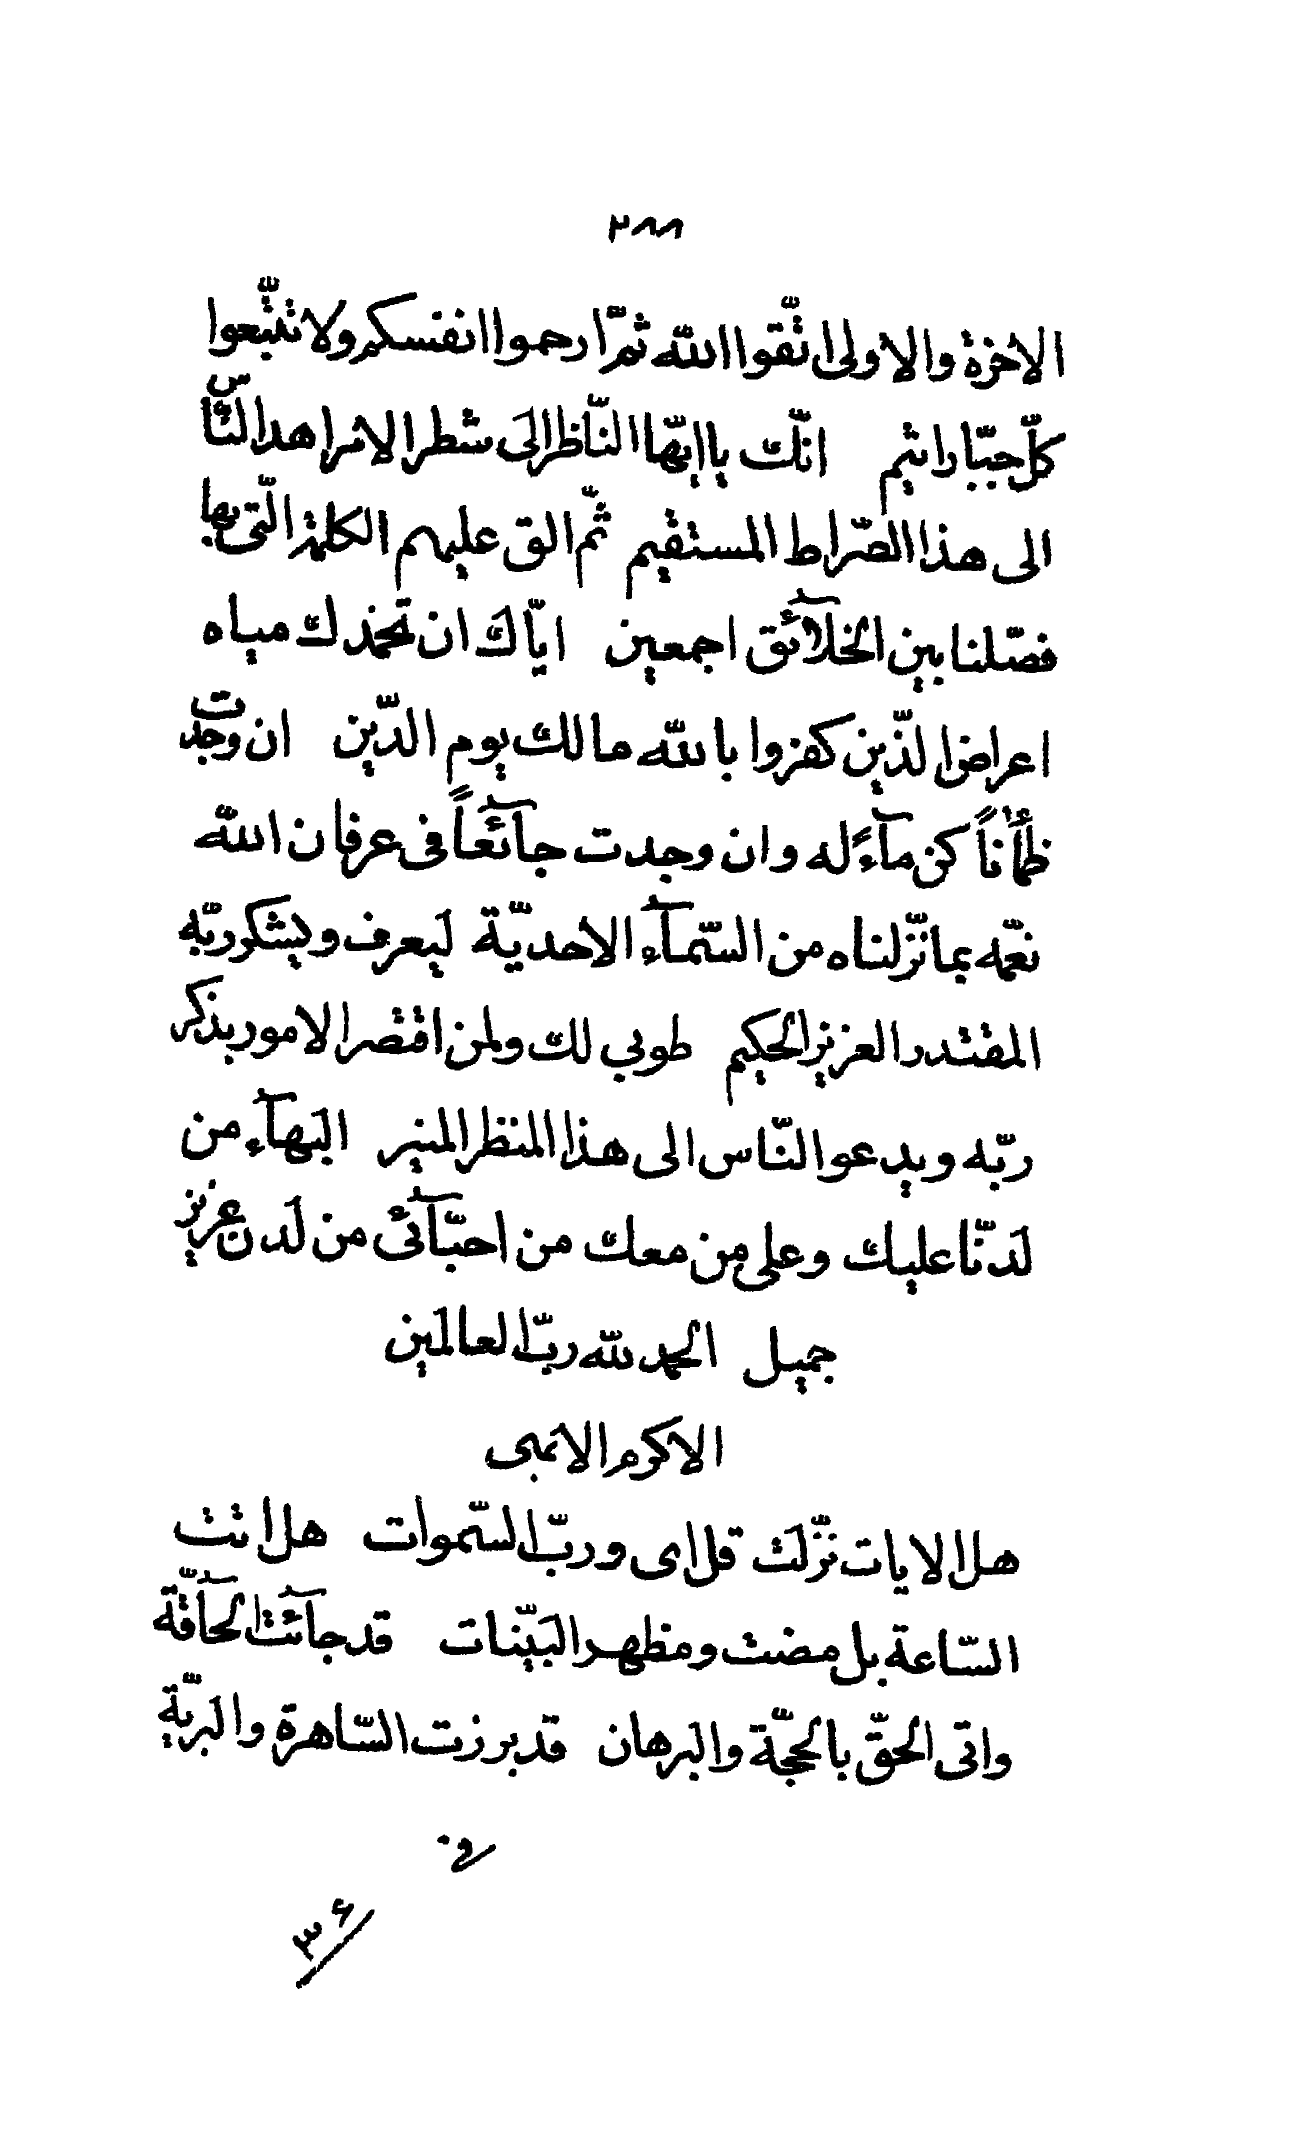 ٢٨٨
الاخرة والاولى اتّقوا اللّه ثمّ ارحموا انفسكم ولا تتّبعوا
كلّ جبّار اثيم انّك يا ايّها النّاظر الى شطر الامر اهد النّاس
الى هذا الصّراط المستقيم ثمّ الق عليهم الكلمة الّتى بها
فصّلنا بين الخلآئق اجمعين ايّاك ان تخمذك مياه
اعراض الّذين كفروا باللّه مالك يوم الدّين ان وجدت
ظمأناً كن مآءً له وان وجدت جآئعاً فى عرفان اللّه
نعّمه بما نزّلناه من السّمآء الاحديّة ليعرف ويشكر ربّه
المقتدر العزيز الحكيم طوبى لك ولمن اقتصر الامور بذكر
ربّه ويدعو النّاس الى هذا المنظر المنير البهآء من
لدنّا عليك وعلى من معك من احبّآئى من لدن عزيز
جميل الحمد للّه ربّ العالمين
الاكرم الابهى
هل الايات نزّلت قل اى وربّ السّموات هل اتت
السّاعة بل مضت ومظهر البيّنات قد جآئت الحآقّة
واتى الحقّ بالحجّة والبرهان قد برزت السّاهرة والبريّة
٣٦